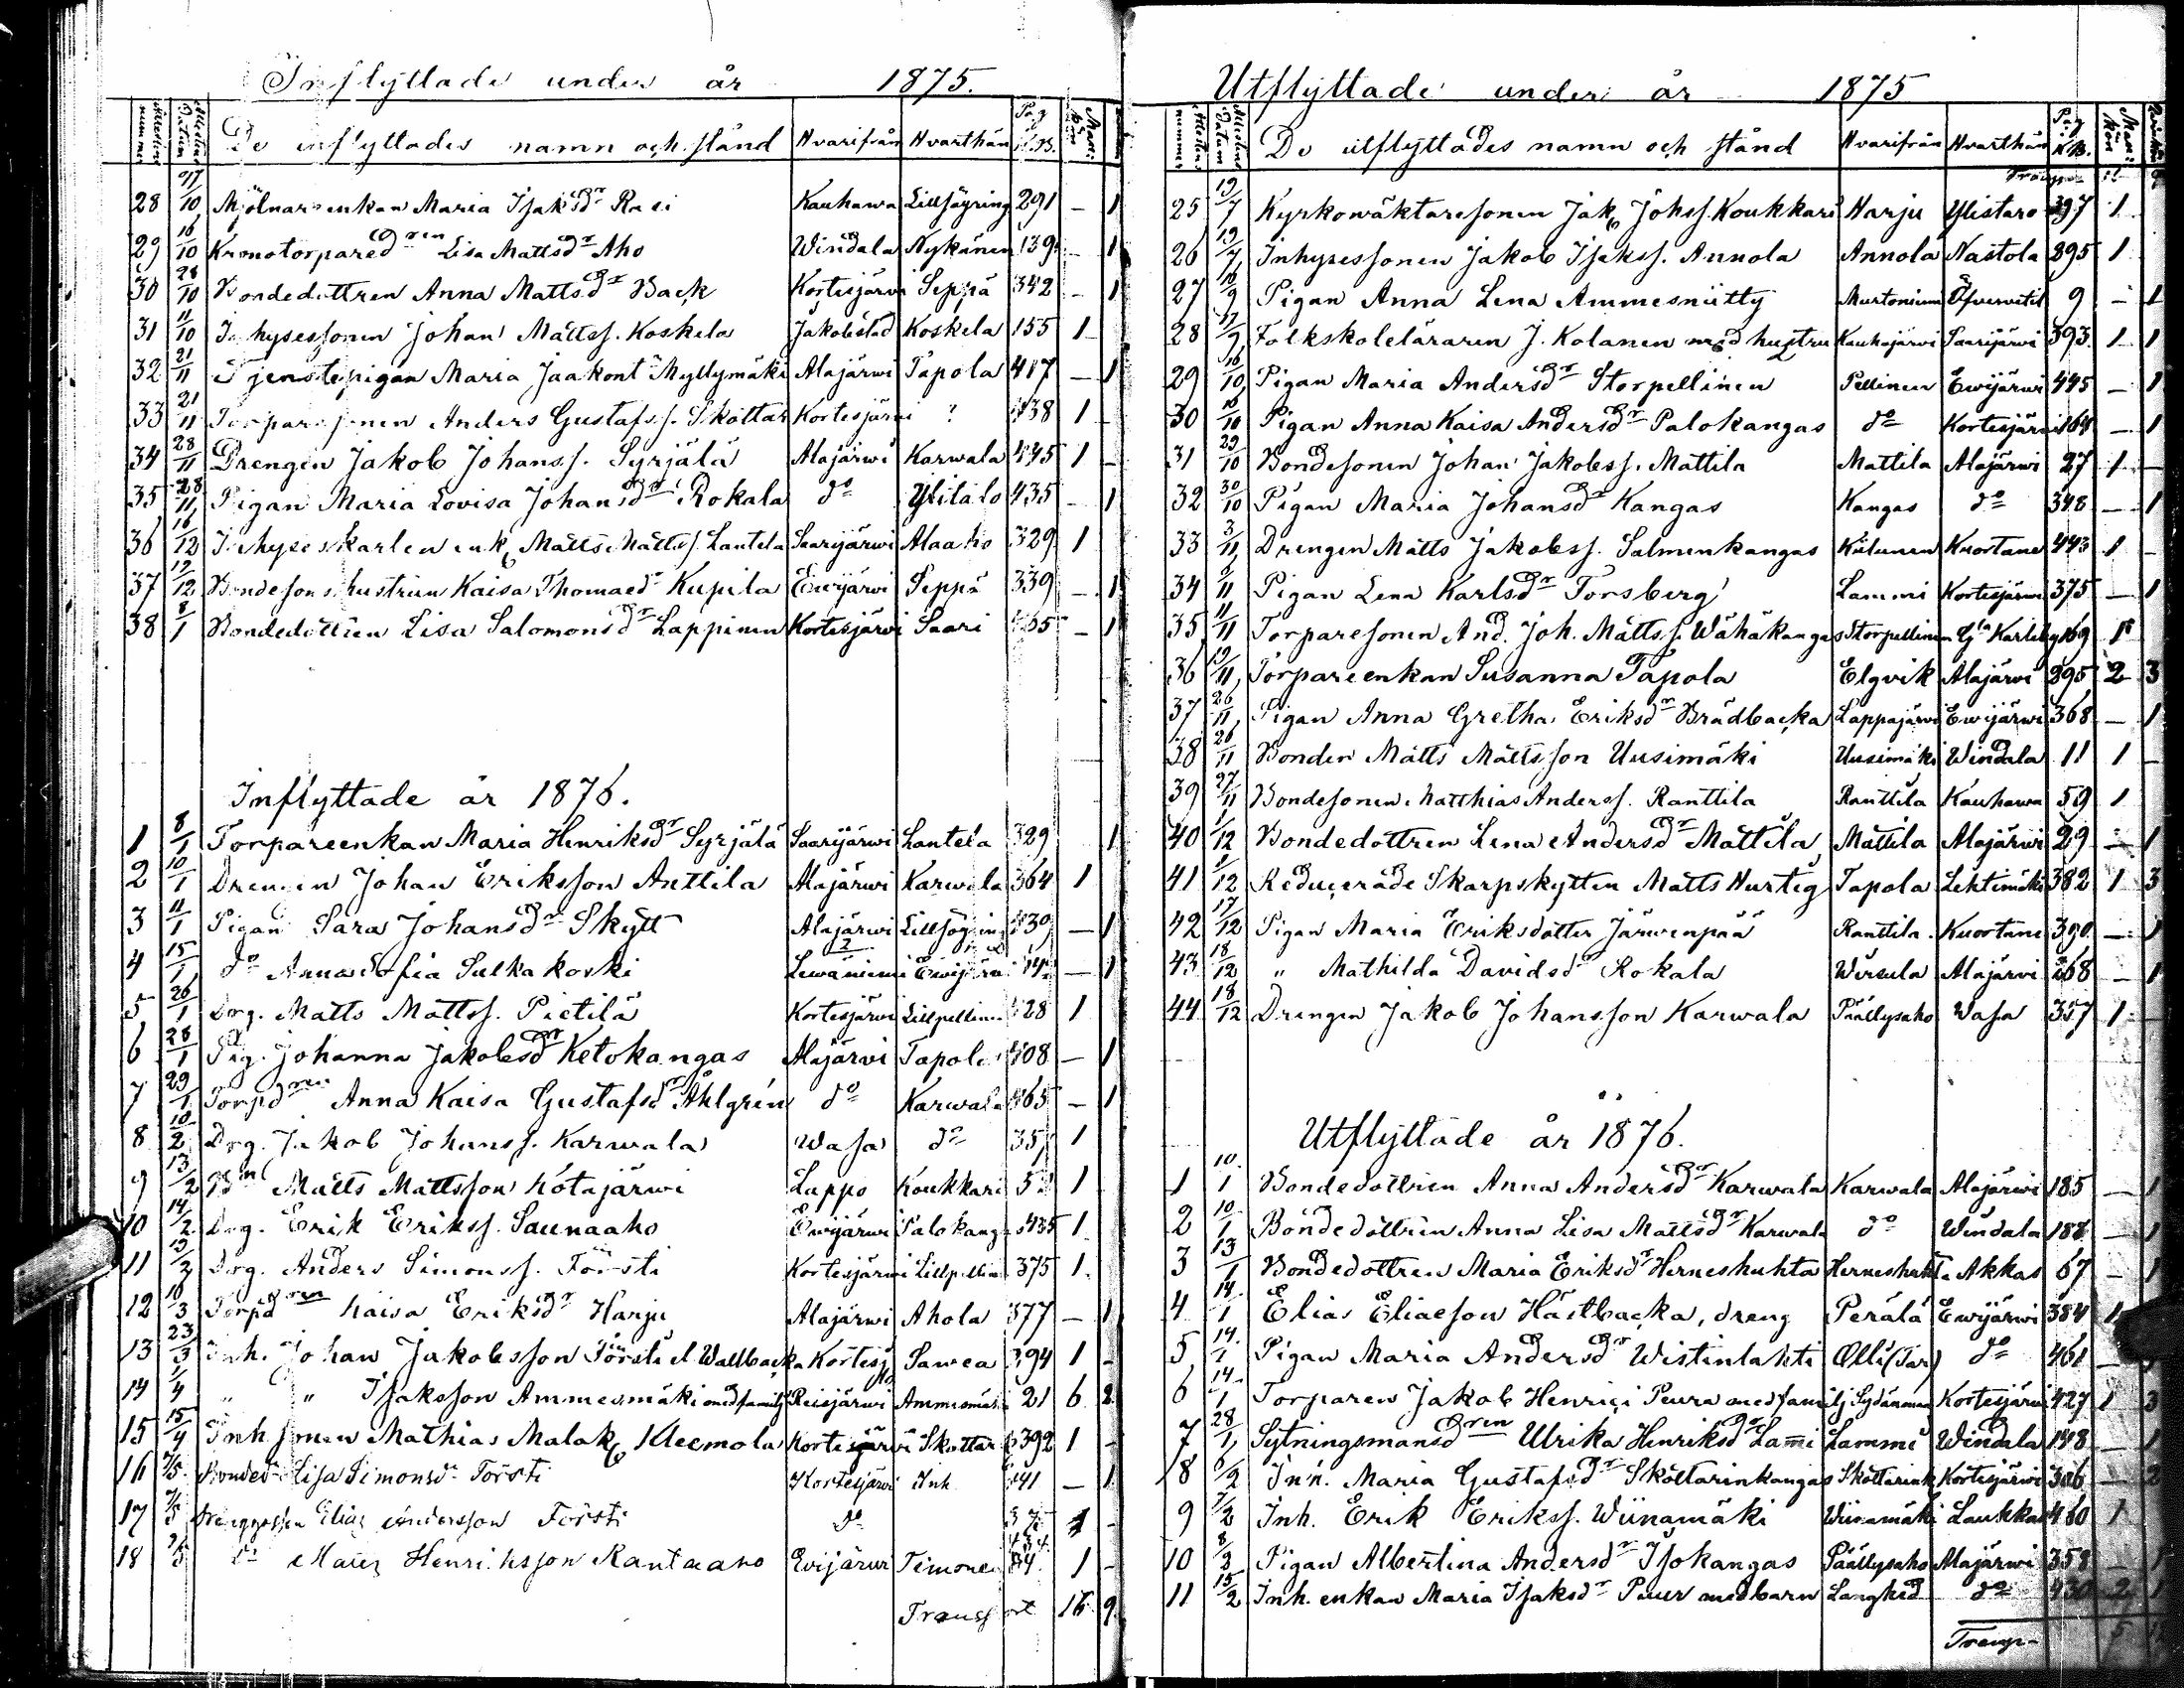 Inflyttade under år 1875.
De inflyttades namn och stånd Hvarifrån Hvarthän Pag. K.B.
28 /10 Mjölnarenkan Maria Isaksdr Kauhawa Lillsöyring 291 — 1
29 16/10 Kronotorparedren Lisa Mattsdr Aho Windala Nykänen 139 1
30 28/10 Bondedottren Anna Mattsdr Back Kortesjärvi Seppä 342 — 1
31 11/10 Inhysessonen Johan Mattss. Koskela Jakobstad Koskela 155 1
32 21/11 Tjenstepigan Maria Jaakont. Myllymäki Alajärwi Tapola 417 — 1
33 21/11 Torparesonen Anders Gustafss. Skottar Kortesjärvi ? 438 1
34 28/11 Drengen Jakob Johanss. Syrjälä Alajärwi Karwala 445 1 —
35 28/11 Pigan Maria Lovisa Johansdr Rokala do Ylitalo 435 — 1
36 16/12 Inhyseskarlen enk. Matts Mattss. Lantela Saarijärwi Alaaho 329 1
37 19/12 Bondesons hustrun Kaisa Thomaedr Kupila Ewijärwi Seppä 339 — 1
38 8/1 Bondedottren Lisa Salomonsdr Lappinen Kortesjärvi Saari — 1
Inflyttade år 1876.
1 8/1 Torpareenkan Maria Henriksdr Syrjälä Saarijärwi Lantela 329 1
2 10/1 Drengen Johan Eriksson Anttila Alajärwi Karwala 364 1
3 11/1 Pigan Sara Johansdr Skytt Alajärwi — 1
4 15/1 do Anna Sofia Sulkakoski Lewäniemi Ewijärwi — 1
5 26/1 Drg. Matts Mattss. Pietilä Kortesjärvi Lillpellinen 428 1
6 28/1 Pig. Johanna Jakobsdr Ketokangas Alajärwi Tapola 408 — 1
7 29/1 Torpdren Anna Kaisa Gustafsdr Åhlgrén do Karwala 465 — 1
8 10/2 Drg. Jakob Johanss. Karwala Wasa do 1
9 13/2 Matts Mattsson Kotajärwi Lappo Koukkari 1
10 14/2 Drg. Erik Erikss. Saunaaho Ewijärwi Palokang 435 1
11 19/2 Drg. Anders Simonss. Försti Kortesjärwi Lillpellin 375 1
12 10/3 Torpdren Kaisa Eriksdr Harju Alajärwi Ahola 377 — 1
13 23/3 Inh. Johan Jakobsson Försti el Wallbacka Kortesj Sawea 394 1 —
14 1/4 " " Isaksson Ammesmäki med familj Reisjärwi Ammesmäki 21 6 2
15 15/4 Inh. sonen Mathias Malak. Kleemola Kortesjärvi Skottar 392 1 —
16 7/5 Bonded. Lisa Simonsdr Försti Kortesjärvi Inh 441 — 1
17 7/5 Elias Andersson Försti do 1 —
18 Henriksson Rantaaho Evijärvi Timonen 1 —
Transport 16 9
Utflyttade under år 1875
De utflyttades namn och stånd Hvarifrån Hvarthän Pag. K.B.
25 19/7 Kyrkowäktaressonen Jak. Johss. Koukkari Harju Ylistaro 397 1
26 19/7 Inhysessonen Jakob Isakss. Annola Annola Nastola 395 1
27 Pigan Anna Lena Ammesniitty Murtoniemi Öfvervetil 9 — 1
28 17/9 Folkskoleläraren J. Kolanen med hustru Kauhajärvi Saarijärwi 393 1 1
29 16/10 Pigan Maria Andersdr Storpellinen Pellinen Ewijärwi 445 — 1
30 16/10 Pigan Anna Kaisa Andersdr Palokangas do Kortesjärvi 164 — 1
31 29/10 Bondesonen Johan Jakobss. Mattila Mattila Alajärwi 27 1 —
32 30/10 Pigan Maria Johansdr Kangas Kangas do 348 — 1
33 3/11 Drengen Matts Jakobss. Salmenkangas Kuortane 443 1 —
34 11 Pigan Lena Karlsdr Forsberg Lammi Kortesjärwi 375 — 1
35 11/11 Torparesonen And. Joh. Mattss. Wähäkangas Storpellinen Gla Karleby 169 1
36 19/11 Torpareenkan Susanna Tapola Elgvik Alajärwi 295 2 3
37 26/11 Pigan Anna Gretha Eriksdr Brädbacka Lappajärvi Ewijärwi 368 — 1
38 26/11 Bonden Matts Mattsson Uusimäki Uusimäki Windala 11 1 —
39 27/11 Bondesonen Matthias Anderss. Ranttila Ranttila Kauhawa 59 1
40 1/12 Bondedottren Lena Andersdr Mattila Mattila Alajärwi 29 — 1
41 12 Reducerade Skarpskytten Matts Hurtig Tapola Lehtimäki 382 1 3
42 17/12 Pigan Maria Eriksdotter Järwenpää Ranttila Kuortane 390 — 1
43 18/12 " Mathilda Davidsdr Rokala Wirsula Alajärwi 268 — 1
44 18/12 Drengen Jakob Johansson Karwala Päällysaho Wasa 357 1 —
Utflyttade år 1876.
1 10/1 Bondedottren Anna Andersdr Karwala Karwala Alajärwi 185 — 1
2 10/1 Bondedottren Anna Lisa Mattsdr Karwala do Windala 188 — 1
3 13/1 Bondedottren Maria Eriksdr Herneshuhta Herneshuhta Akkas 67 — 1
4 14/1 Elias Eliaeson Hästbacka, dreng Perälä Ewijärwi 384 1
5 14/1 Pigan Maria Andersdr Wistinlahti Olli (Tar) do 461 —
6 14/1 Torparen Jakob Henrici Peura med familj Sydänmaa Kortesjärwi 427 1 3
7 28/1 Sytningsmansdren Ulrika Henriksdr Lami Lammi Windala 148 — 1
8 6/2 Inh. Maria Gustafsdr Skottarinkangas Skottarink Kortesjärwi 306 — 2
9 7/2 Inh. Erik Erikss. Wiinamäki Wiinamäki Laukkas 460 1
10 8/2 Pigan Albertina Andersdr Isokangas Päällysaho Alajärwi 358 — 1
11 15/2 Inh. enkan Maria Isaksdr Puur med barn Langhed do 430 2 1
Transp- 5